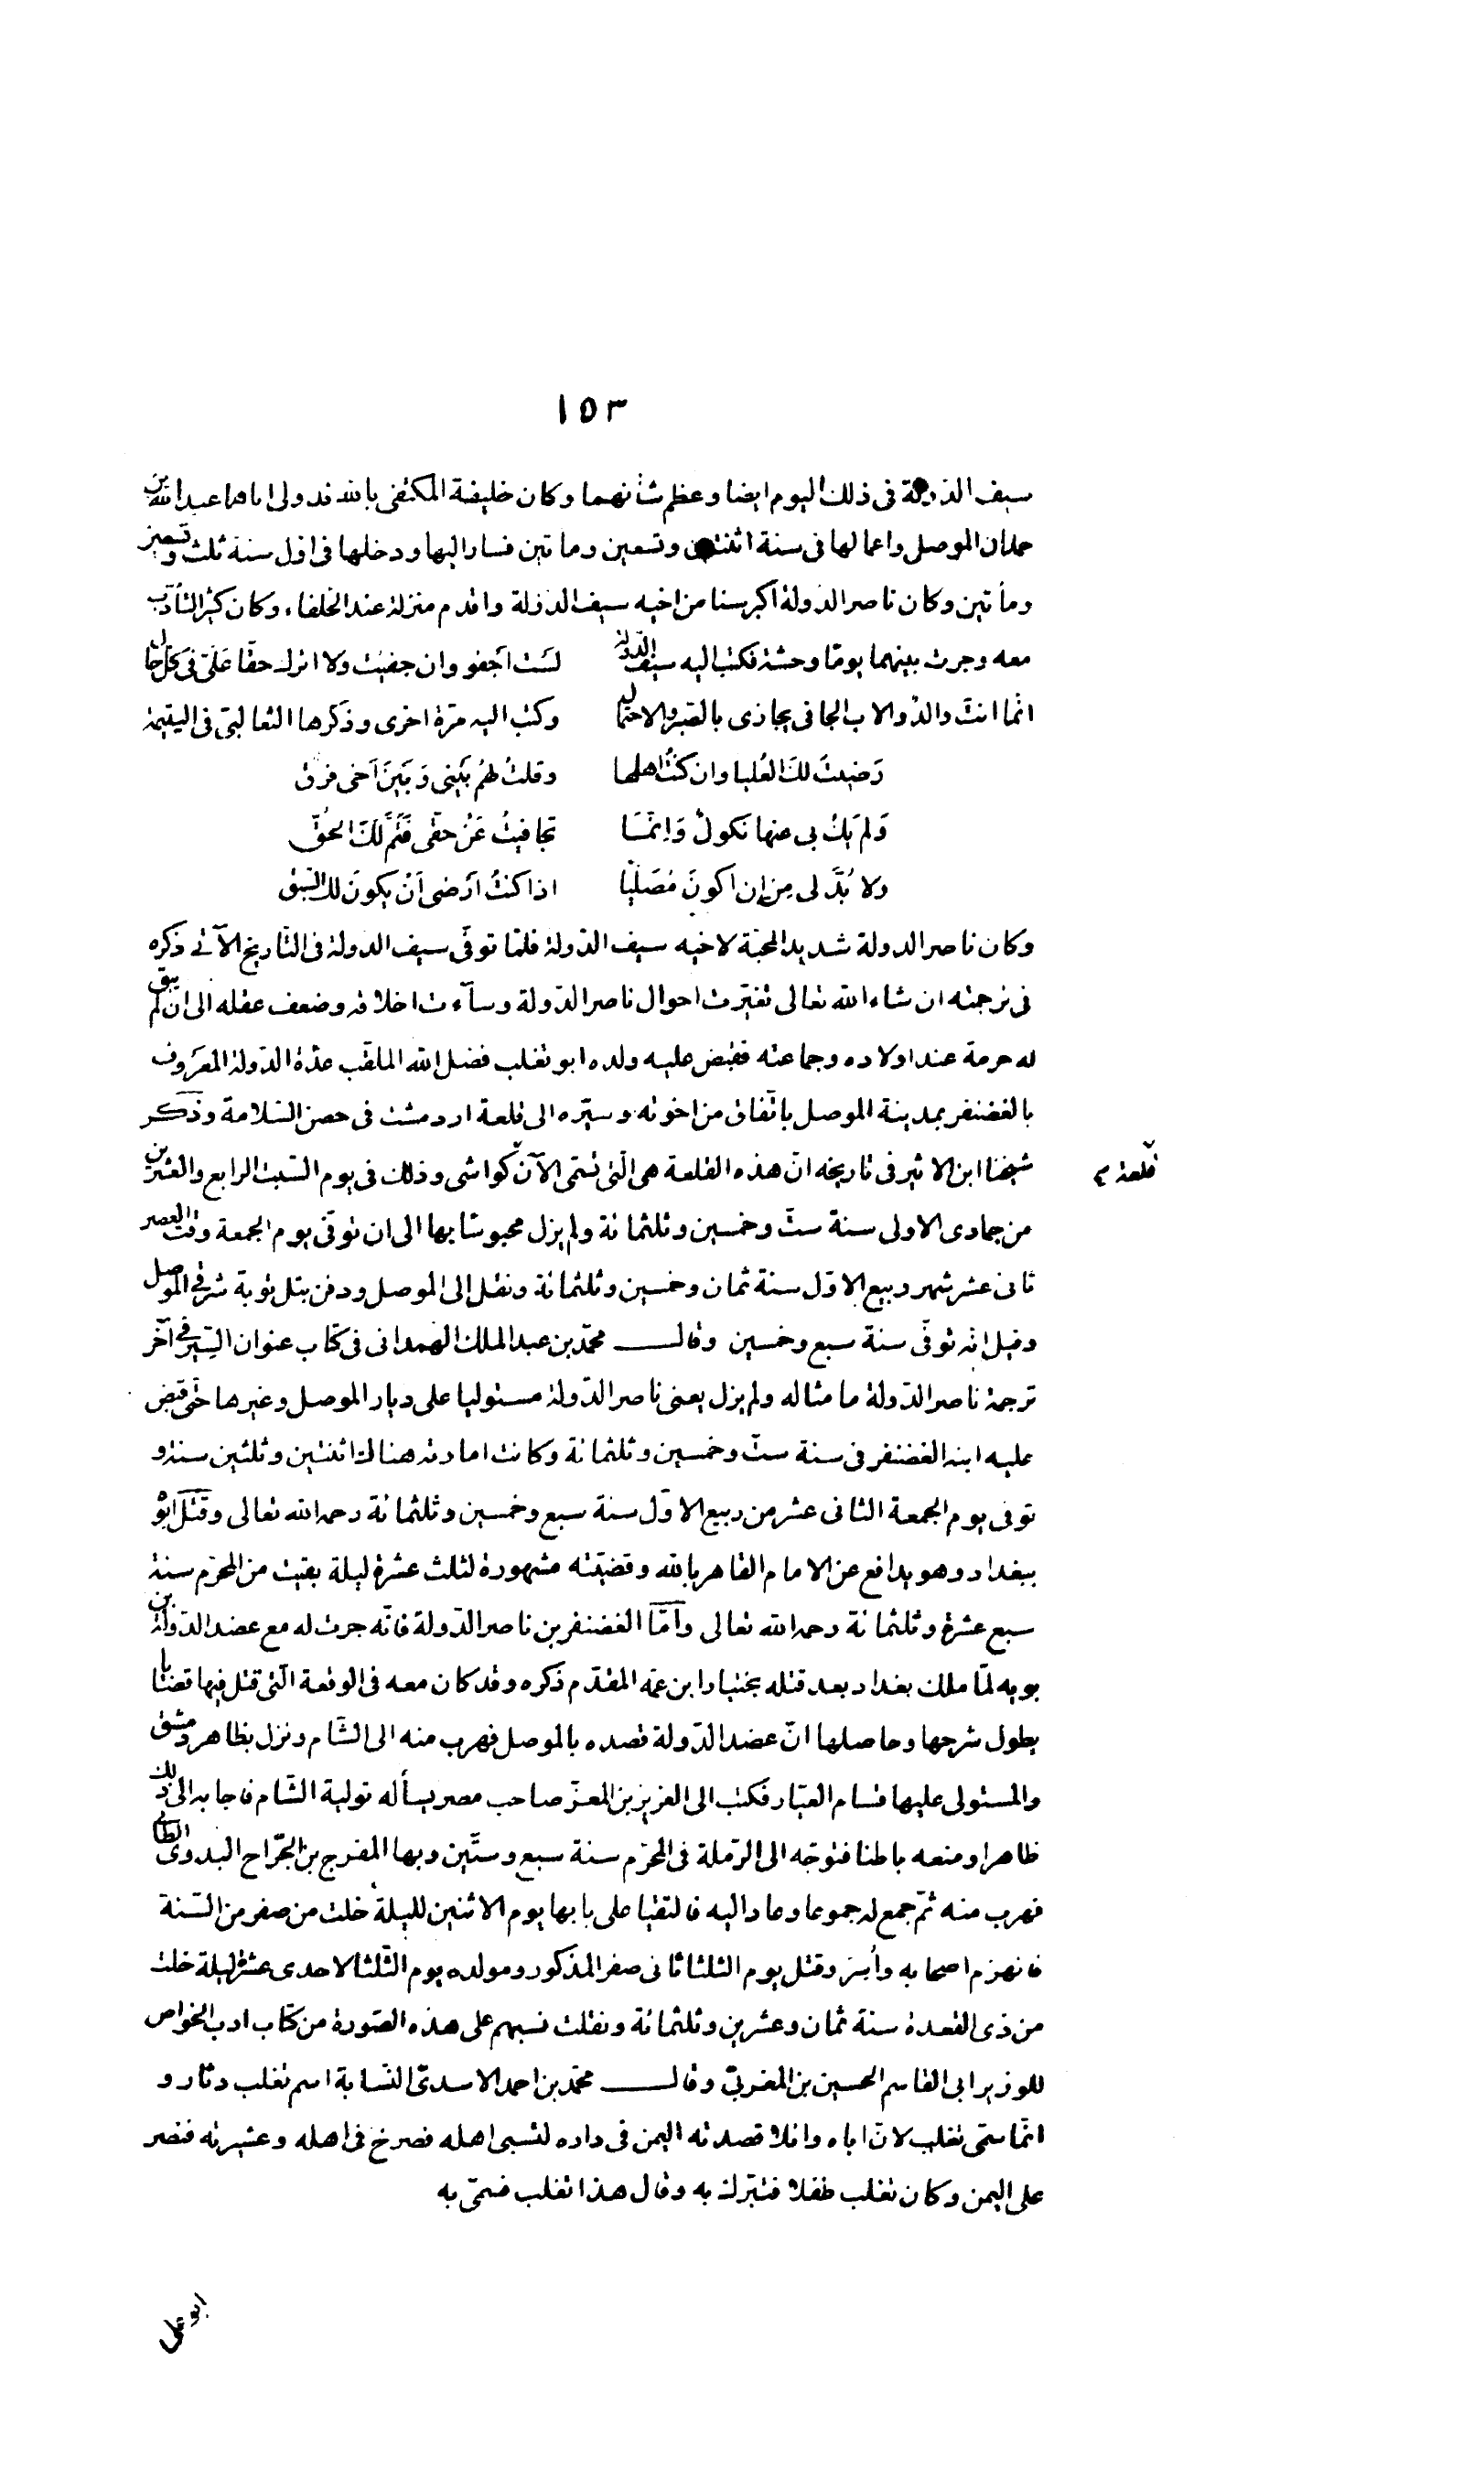 ١٥٣
سيف الدولة فى ذلك اليوم ايضا وعظم شأنهما وكان خليفة المكتفى بالله قد ولى اباهما عبد الله بن
حمدان الموصل واعمالها فى سنة اثنتين وتسعين وماتين فسار اليها ودخلها فى اول سنة ثلث وتسعين
ومأتين وكان ناصر الدولة اكبر سنا من اخيه سيف الدولة واقدم منزلة عند الخلفاء وكان كثير التأدّب
معه وجرت بينهما يومًا وحشة فكتب اليه سيف الدّولة لَسْت اَجفو وان جفيت ولا اترك حقّا عَلَىّ فى كلّ حال
انّما انتَ والدٌ والاب الجافى يجازى بالصّبر والاحتمال وكتب اليه مرّة اخرى وذكرها الثعالبىّ فى اليتيمة
رَضيتُ لكَ العُليا وان كنتُ اهلها وقلتُ لهُم بَيْنى وَبَينَ اَخى فرق
وَلم يَكُ بى عنها نَكولٌ وَاِنّمَا تجافيتُ عَنْ حقّى فَتَمَّ لَكَ الحُقّ
ولا بُدَّ لى مِن ان اكونَ مُصَلّيًا اذا كنتُ اَرْضى اَنْ يكونَ لك السّبق
وكان ناصر الدولة شديد المحبّة لاخيه سيف الدّولة فلمّا توفّى سيف الدولة فى التّاريخ الآتى ذكره
فى ترجمته ان شاء الله تعالى تغيّرت احوال ناصر الدّولة وسآءت اخلاقه وضعف عقله الى ان لم يبق
له حرمة عند اولاده وجماعته فقبض عليه ولده ابو تغلب فضل الله الملقب عدّة الدّولة المعروف
بالغضنفر بمدينة الموصل باتّفاق من اخوته وسيّره الى قلعة اردمشت فى حصن السّلامة وذكر
شيخنا ابن الاثير فى تاريخه انّ هذه القلعة هى الّتى تسمّى الآن كواشى وذلك فى يوم السّبت الرابع والعشرين
قلعة
من جمادى الاولى سنة ستّ وخمسين وثلثمائة ولم يزل محبوسًا بها الى ان توفّى يوم الجمعة وقت العصر
ثانى عشر شهر ربيع الاوّل سنة ثمان وخمسين وثلثمائة ونقل الى الموصل ودفن بتل توبة شرقى الموصل
وقيل انّه توفّى سنة سبع وخمسين وقال محمّد بن عبد الملك الهمدانى فى كتاب عنوان السّير فى آخر
ترجمة ناصر الدّولة ما مثاله ولم يزل يعنى ناصر الدّولة مستوليا على ديار الموصل وغيرها حتّى قبض
عليه ابنه الغضنفر فى سنة ستّ وخمسين وثلثمائة وكانت امارته هناك اثنتين وثلثين سنة و
توفى يوم الجمعة الثانى عشر من ربيع الاوّل سنة سبع وخمسين وثلثمائة رحمه الله تعالى وقتل ابوه
ببغداد وهو يدافع عن الامام القاهر بالله وقضيّته مشهورة لثلث عشرة ليلة بقيت من المحرّم سنة
سبع عشرة وثلثمائة رحمه الله تعالى وآمّا الغضنفر بن ناصر الدّولة فانّه جرت له مع عضد الدّولة بن
بويه لمّا ملك بغداد بعد قتله بختيار ابن عمّه المقدّم ذكره وقد كان معه فى الوقعة الّتى قتل فيها قضايا
يطول شرحها وحاصلها انّ عضد الدّولة قصده بالموصل فهرب منه الى الشّام ونزل بظاهر دمشق
والمستولى عليها قسام العيّار فكتب الى العزيز بن المعزّ صاحب مصر يسأله تولية الشّام فاجابه الى ذلك
ظاهرا ومنعه باطنا فتوجّه الى الرّملة فى المحرّم سنة سبع وستّين وبها المفرج بن الجرّاح البدوىّ الطائى
فهرب منه ثمّ جمع له جموعا وعاد اليه فالتقيا على بابها يوم الاثنين لليلة خلت من صفر من السّنة
فانهزم اصحابه وأُسِرَ وقتل يوم الثلثا ثانى صفر المذكور ومولده يوم الثّلثا لاحدى عشرة ليلة خلت
من ذى القعدة سنة ثمان وعشرين وثلثمائة ونقلت نسبهم على هذه الصّورة من كتاب ادب الخواص
للوزير ابى القاسم الحسين بن المغربىّ وقال محمّد بن احمد الاسدىّ النّسّابة اسم تغلب دثار و
انّما سمّى تغلب لانّ اباه وائلا قصدته اليمن فى داره لتسبى اهله فصرخ فى اهله وعشيرته فنصر
على اليمن وكان تغلب طفلا فتبرّك به وقال هذا تغلب فسمّى به
ابو على